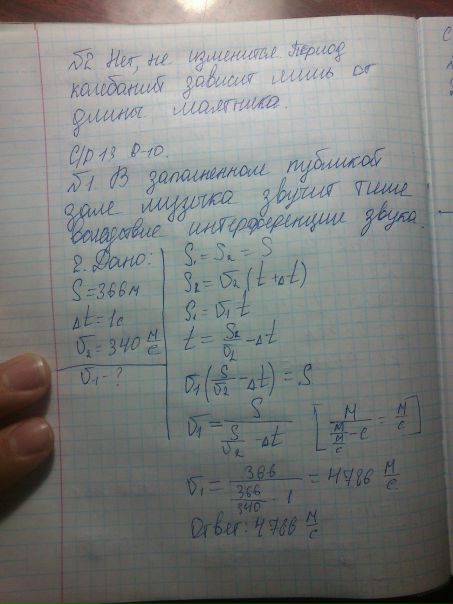 №2 Нет, не изменится. Период
колебаний зависит лишь от
длины маятника.
С/р 13 В-10.
№1. В заполненном публикой
зале музычка звучит тише
вследствие интерференции звука.
2. Дано:
S=366м
Δt=1с
υ₂=340 м/с
υ₁-?
S₁=S₂=S
S₂=υ₂(t+Δt)
S₁=υ₁t
t=S₂/υ₂-Δt
υ₁(S/υ₂-Δt)=S
υ₁=S/(S/υ₂-Δt) [м/(м/(м/с)-с)=м/с]
υ₁=366/(366/340-1)=4786 м/с
Ответ: 4786 м/с